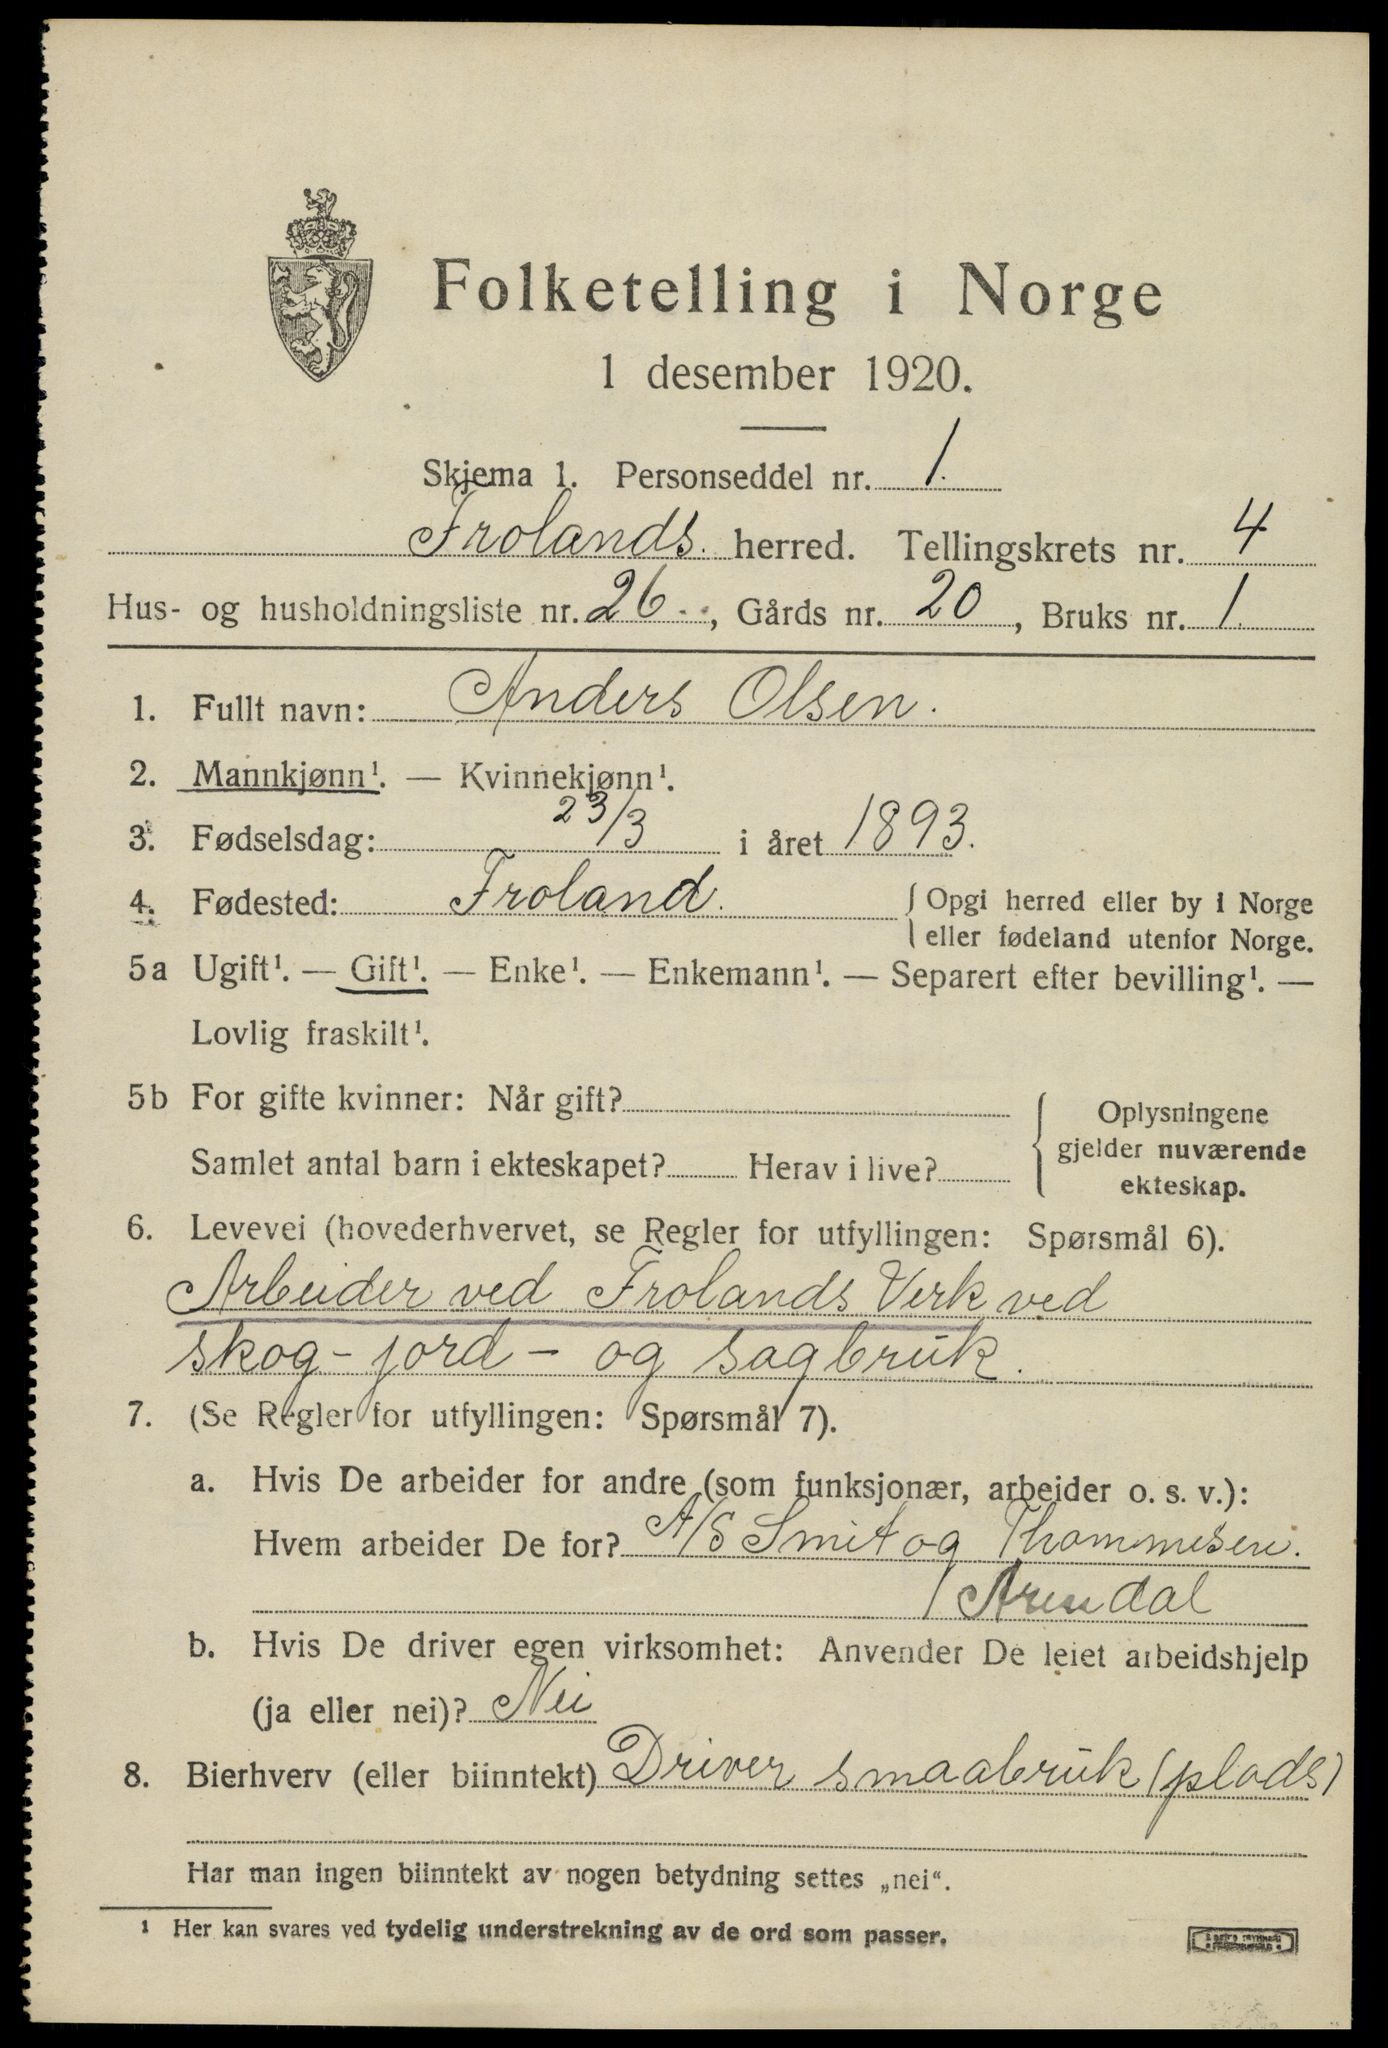 Folketelling i Norge
1 desember 1920.
Skjema 1. Personseddel nr. 1.
Frolands. herred. Tellingskrets nr. 4
Hus- og husholdningsliste nr. 26, Gårds nr. 20, Bruks nr. 1.
1. Fullt navn: Anders Olsen.
2. Mannkjønn¹. — Kvinnekjønn¹.
3. Fødselsdag: 23/3 i året 1893.
4. Fødested: Froland. Opgi herred eller by i Norge
eller fødeland utenfor Norge.
5a Ugift¹. — Gift¹. — Enke¹. — Enkemann¹. — Separert efter bevilling¹. —
Lovlig fraskilt¹.
5b For gifte kvinner: Når gift? Oplysningene
gjelder nuværende
Samlet antal barn i ekteskapet? Herav i live? ekteskap.
6. Levevei (hovederhvervet, se Regler for utfyllingen: Spørsmål 6).
Arbeider ved Frolands Verk ved
skog - jord - og sagbruk.
7. (Se Regler for utfyllingen: Spørsmål 7).
a. Hvis De arbeider for andre (som funksjonær, arbeider o. s. v.):
Hvem arbeider De for? A/S Smit og Thommesen.
Arendal
b. Hvis De driver egen virksomhet: Anvender De leiet arbeidshjelp
(ja eller nei)? Nei
8. Bierhverv (eller biinntekt) Driver smaabruk (plads)
Har man ingen biinntekt av nogen betydning settes „nei“.
¹ Her kan svares ved tydelig understrekning av de ord som passer.